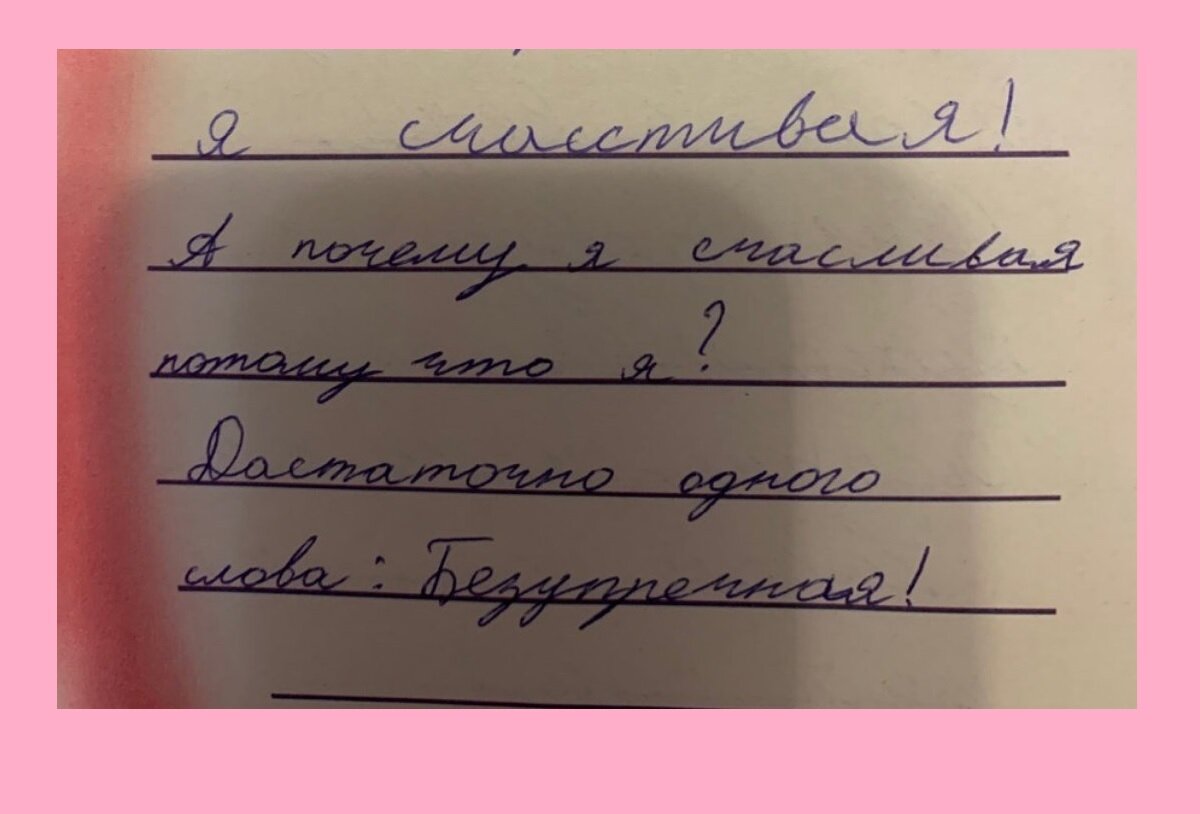 Я счасстивая!
А почему я счасливая
потому что я?
Достаточно одного
слова: Безупречная!